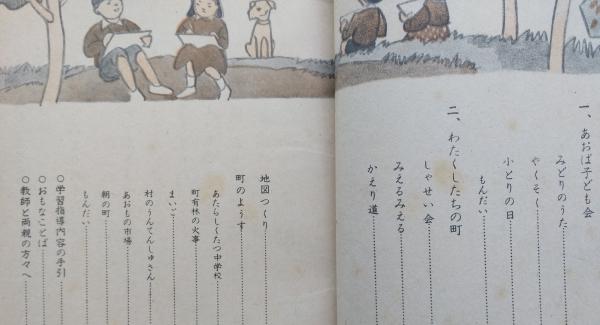 一、あおば子ども会
みどりのうた
やくそく
小とりの日
もんだい
二、わたくしたちの町
しゃせい会
みえるみえる
かえり道
地図つくり
町のようす
あたらしくたつ中学校
町有林の火事
まいご
村のうんてんしゅさん
あおもの市場
朝の町
もんだい
○学習指導内容の手引
○おもなことば
○教師と両親の方々へ